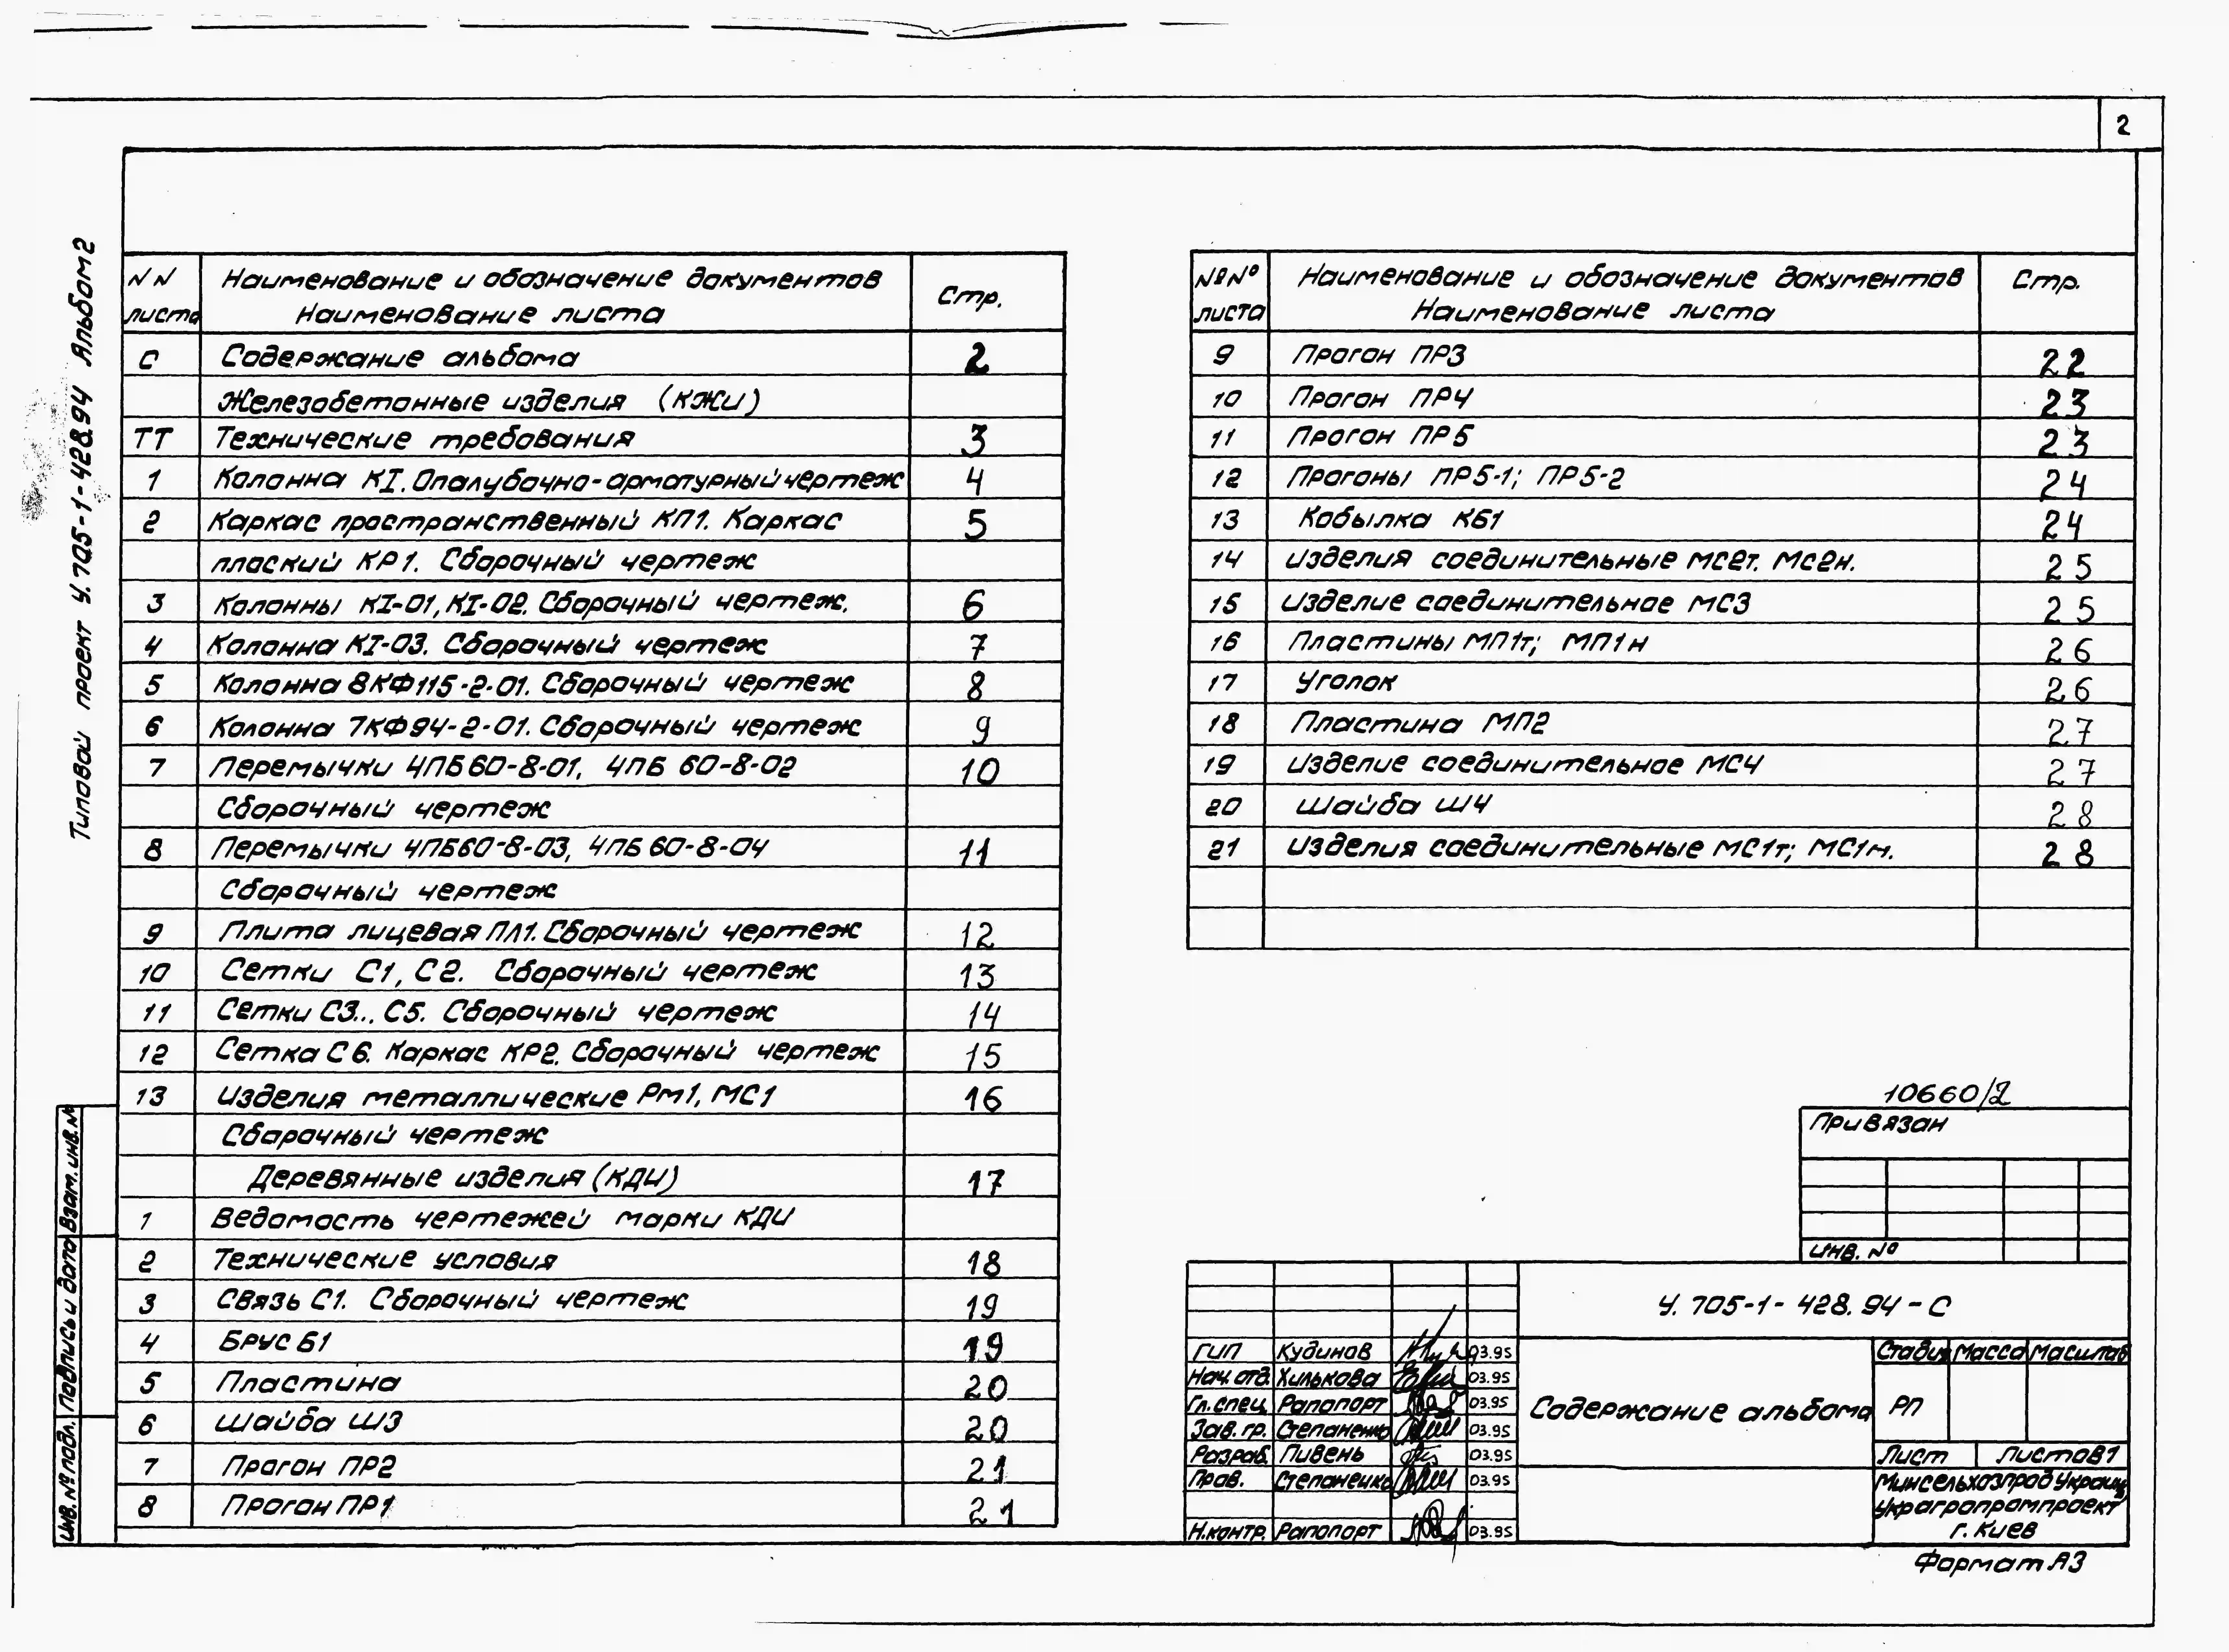 2
Типовой проект У.705-1-428.94 Альбом 2
NN листа
Наименование и обозначение документов
Наименование листа
Стр.
С Содержание альбома 2
Железобетонные изделия (КЖИ)
ТТ Технические требования 3
1 Колонна КI. Опалубочно-арматурный чертеж 4
2 Каркас пространственный КП1. Каркас 5
плоский КР1. Сборочный чертеж
3 Колонны КI-01, КI-02. Сборочный чертеж. 6
4 Колонна КI-03. Сборочный чертеж 7
5 Колонна 8КФ115-2-01. Сборочный чертеж 8
6 Колонна 7КФ94-2-01. Сборочный чертеж 9
7 Перемычки 4ПБ60-8-01, 4ПБ 60-8-02 10
Сборочный чертеж
8 Перемычки 4ПБ60-8-03, 4ПБ 60-8-04 11
Сборочный чертеж
9 Плита лицевая ПЛ1. Сборочный чертеж 12
10 Сетки С1, С2. Сборочный чертеж 13
11 Сетки С3... С5. Сборочный чертеж 14
12 Сетка С6. Каркас КР2. Сборочный чертеж 15
13 Изделия металлические Рм1, МС1 16
Сборочный чертеж
Деревянные изделия (КДИ) 17
1 Ведомость чертежей марки КДИ
2 Технические условия 18
3 Связь С1. Сборочный чертеж 19
4 Брус Б1 19
5 Пластина 20
6 Шайба Ш3 20
7 Прогон ПР2 21
8 Прогон ПР1 21
№№ листа
Наименование и обозначение документов
Наименование листа
Стр.
9 Прогон ПР3 22
10 Прогон ПР4 23
11 Прогон ПР5 23
12 Прогоны ПР5-1; ПР5-2 24
13 Кобылка КБ1 24
14 Изделия соединительные МС2т. МС2н. 25
15 Изделие соединительное МС3 25
16 Пластины МП1т; МП1н 26
17 Уголок 26
18 Пластина МП2 27
19 Изделие соединительное МС4 27
20 Шайба Ш4 28
21 Изделия соединительные МС1т; МС1н. 28
10660/2
Привязан
Инв. №
У. 705-1-428.94-С
ГИП Кудинов 03.95
Нач. отд. Хилькова 03.95
Гл. спец. Рапопорт 03.95
Зав. гр. Степаненко 03.95
Разраб. Пивень 03.95
Пров. Степаненко 03.95
Н.контр. Рапопорт 03.95
Содержание альбома
Стадия Масса Масштаб
РП
Лист Листов 1
Минсельхозпрод Украины
Украгропромпроект
г. Киев
Формат А3
Инв. № подл. Подпись и дата Взам. инв. №